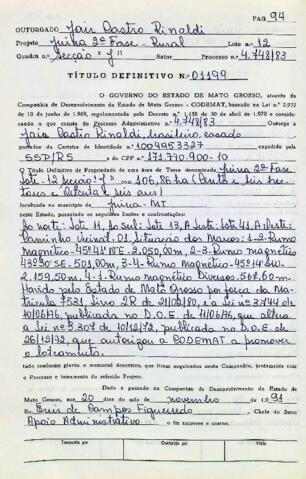 PAG. 94
OUTORGADO Jair Castro Rinaldi
Projeto Juina 2ª Fase - Rural Lote n.º 12
Quadra n.º Secção "J" Setor Processo n.º 4.748/83
TÍTULO DEFINITIVO N.º 01199
O GOVERNO DO ESTADO DE MATO GROSSO, através da
Companhia de Desenvolvimento do Estado de Mato Grosso - CODEMAT, baseado na Lei n.º
de 10 de junho de 1969, regulamentada pelo Decreto n.º 1.138 de 30 de abril de 1970 e considerando
o que consta do Processo Administrativo n.º 4.748/83 Outorga a
Jair Castro Rinaldi, brasileiro, casado
portador da Carteira de Identidade n.º 1009953327 expedida pela
SSP/RS e do CPF n.º 171.770.900-10
O Título Definitivo de Propriedade de uma área de Terra denominada Juina 2ª Fase
Lote-12 Secção "J" 106,86 ha (Cento e Seis hectares
e Oitenta e Seis ares)
localizada no município de Juina - MT
neste Estado, possuindo os seguintes limites e confrontações:
Ao norte: Lote 11, Ao Sul: Lote 13, A Oeste: Lote 41, A Leste:
Caminho Vicinal-01. Situação dos Marcos: 1-2-Rumo
magnético-45º41'NE-2.050,00m, 2-3-Rumo magnético
43º30'SE-501,00m, 3-4-Rumo magnético-45º14'SW-
2.159,50m, 4-1-Rumo magnético Diversos-567,60m-
Havido pelo Estado de Mato Grosso por força da Matrícula
7531, Livro 2R de 21/02/80, e a Lei nº 3744 de
10/06/76, publicada no D.O.E. de 11/06/76, que altera
a Lei nº 3.307 de 10/12/72, publicada no D.O.E. de
26/12/72, que autorizou a CODEMAT a promover
o loteamento.
tudo conforme planta e memorial descritivo, que ficam arquivados nesta Companhia, juntamente com
o Processo e loteamento do referido Projeto.
Dado e passado na Companhia de Desenvolvimento do Estado de
Mato Grosso, aos 20 dias do mês de novembro de 1991
Eu, Enis de Campos Figueiredo, Chefe do Setor
Apoio Administrativo o fiz escrever e assino.
Transcrito por Conferido por Visto